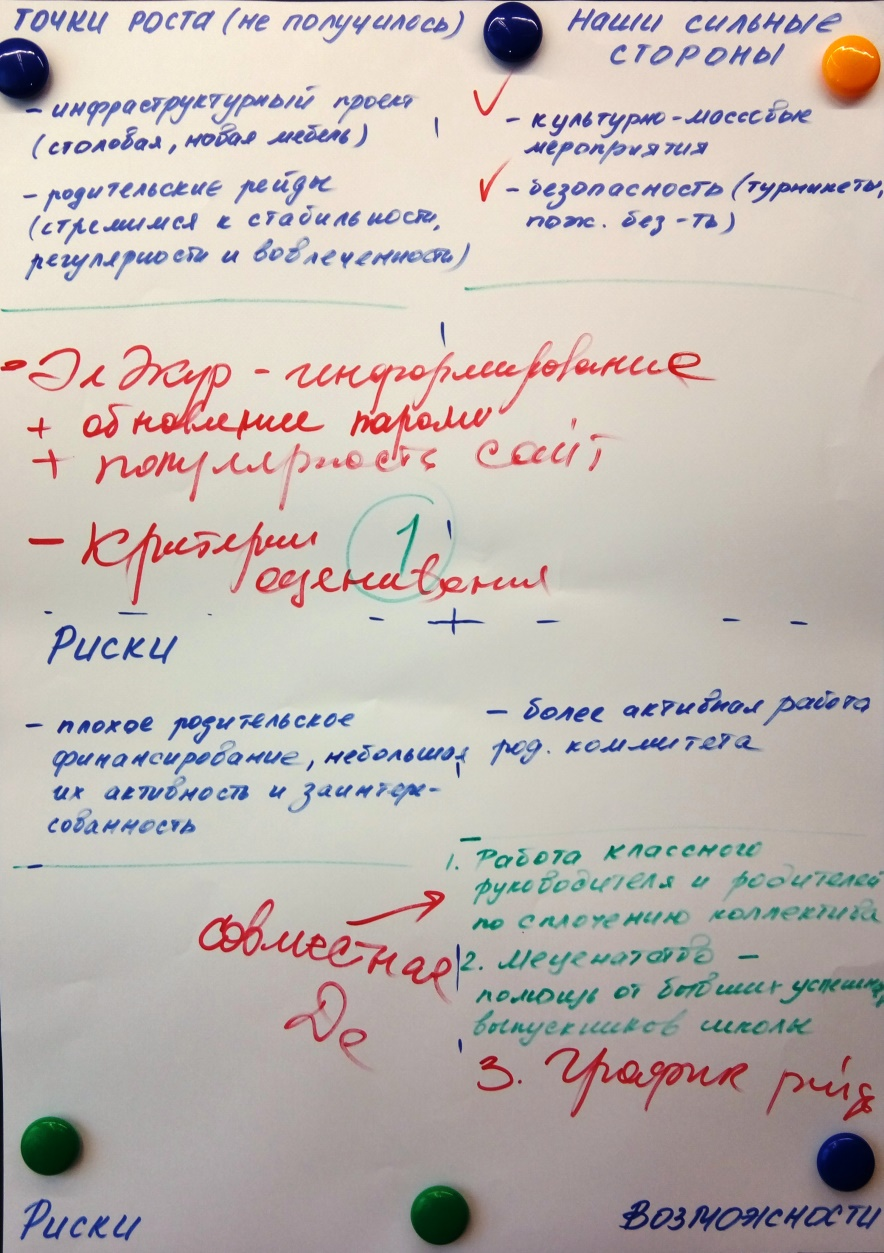 ТОЧКИ РОСТА (не получилось)
- инфраструктурный проект
(столовая, новая мебель)
- родительские рейды
(стремимся к стабильности,
регулярности и вовлеченность)
Наши сильные
стороны
- культурно-массовые
мероприятия
- безопасность (турникеты,
пож. без-ть)
- ЭлЖур - информирование
+ обновление
+ популярность сайт
- Критерии 1
оценивания
Риски
- плохое родительское
финансирование, небольшая
их активность и заинтере-
сованность
- более активная работа
род. коммитета
1. Работа классного
руководителя и родителей
по сплочению коллектива
2. Меценатство -
помощь от бывших успешных
выпускников школы
3. График рейд
совместная
Де
Риски
Возможности